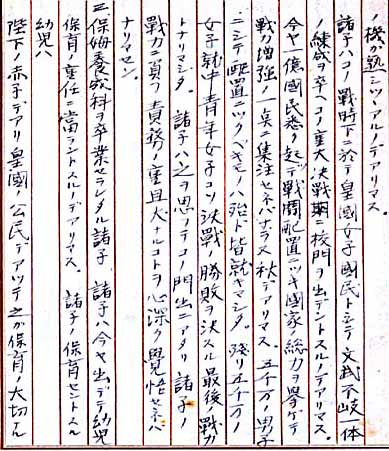 ノ機が熟シツヽアルノデアリマス。
諸子ハコノ戰時下ニ於テ皇國女子國民トシテ文武不岐一体
ノ練成ヲ卒ヘコノ重大決戰期ニ校門ヲ出デントスルノデアリマス。
今ヤ一億國民悉ク起ッテ戰闘配置ニツキ國家ノ総力ヲ擧ゲテ
戰力増強ノ一点ニ集注セネバナラヌ秋デアリマス。五千万ノ男子
ニシテ配置ニツクベキモノハ殆ド皆就キマシタ。殘リ五千万ノ
女子就中青年女子コソ決戰ノ勝敗ヲ決スル最後ノ戰力
トナリマシタ。諸子ハ之ヲ思ッテコノ門出ニアタリ諸子ノ
戰力ノ負フ責務ノ重且大ナルコトヲ心深ク覺悟セネバ
ナリマセン。
三、保姆養成科ヲ卒業セラレタル諸子 諸子ハ今ヤ出デテ幼児
保育ノ重任ニ當ラントスルノデアリマス。諸子ノ保育セントスル
幼児ハ
陛下ノ赤子デアリ皇國ノ公民デアッテ之ガ保育ノ大切ナル